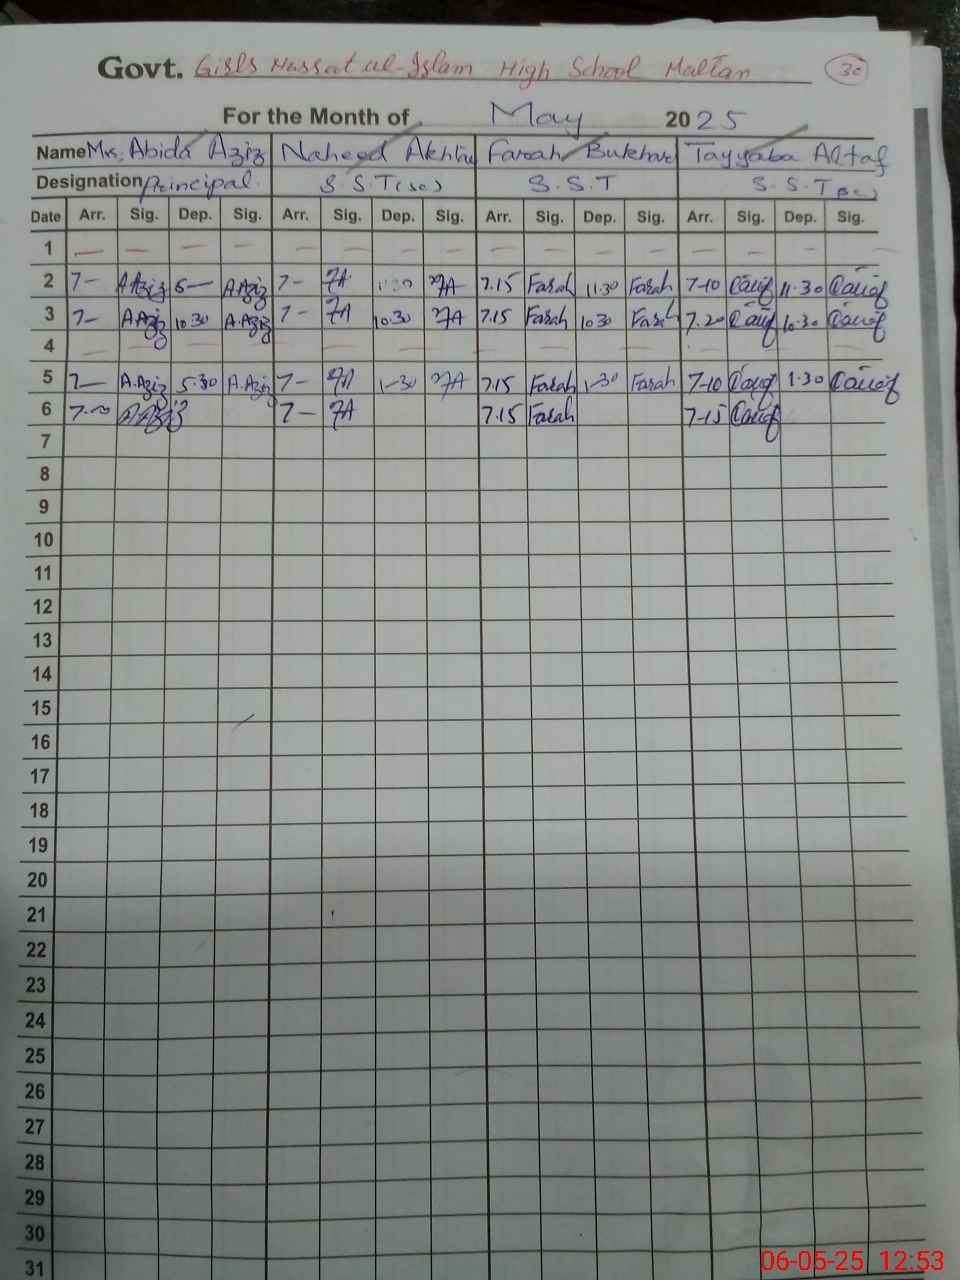 Govt. Girls Nassat ul-Islam High School Multan 30
For the Month of May 2025
Name Mrs. Abida Aziz Naheed Akhtar Farah Bukhari Tayyaba Altaf
Designation Principal S.S.T(sc) S.S.T S.S.T(sc)
Date Arr. Sig. Dep. Sig. Arr. Sig. Dep. Sig. Arr. Sig. Dep. Sig. Arr. Sig. Dep. Sig.
1 — — — — — — — — — — — — — — — —
2 7- A.Aziz 5— A.Aziz 7- 7A 7A 7.15 Farah 11.30 Farah 7-10 11.30
3 7- A.Aziz 10.30 A.Aziz 7- 7A 10.30 7A 7.15 Farah 10.30 Farah 7.20 10.30
4 — — — — — — — — — — — — — — — —
5 7— A.Aziz 5.30 A.Aziz 7- 7A 1-30 7A 7.15 Farah 1-30 Farah 7-10 1.30
6 7.00 A.Aziz 7- 7A 7.15 Farah 7-15
7
8
9
10
11
12
13
14
15
16
17
18
19
20
21
22
23
24
25
26
27
28
29
30
31
06-05-25 12:53